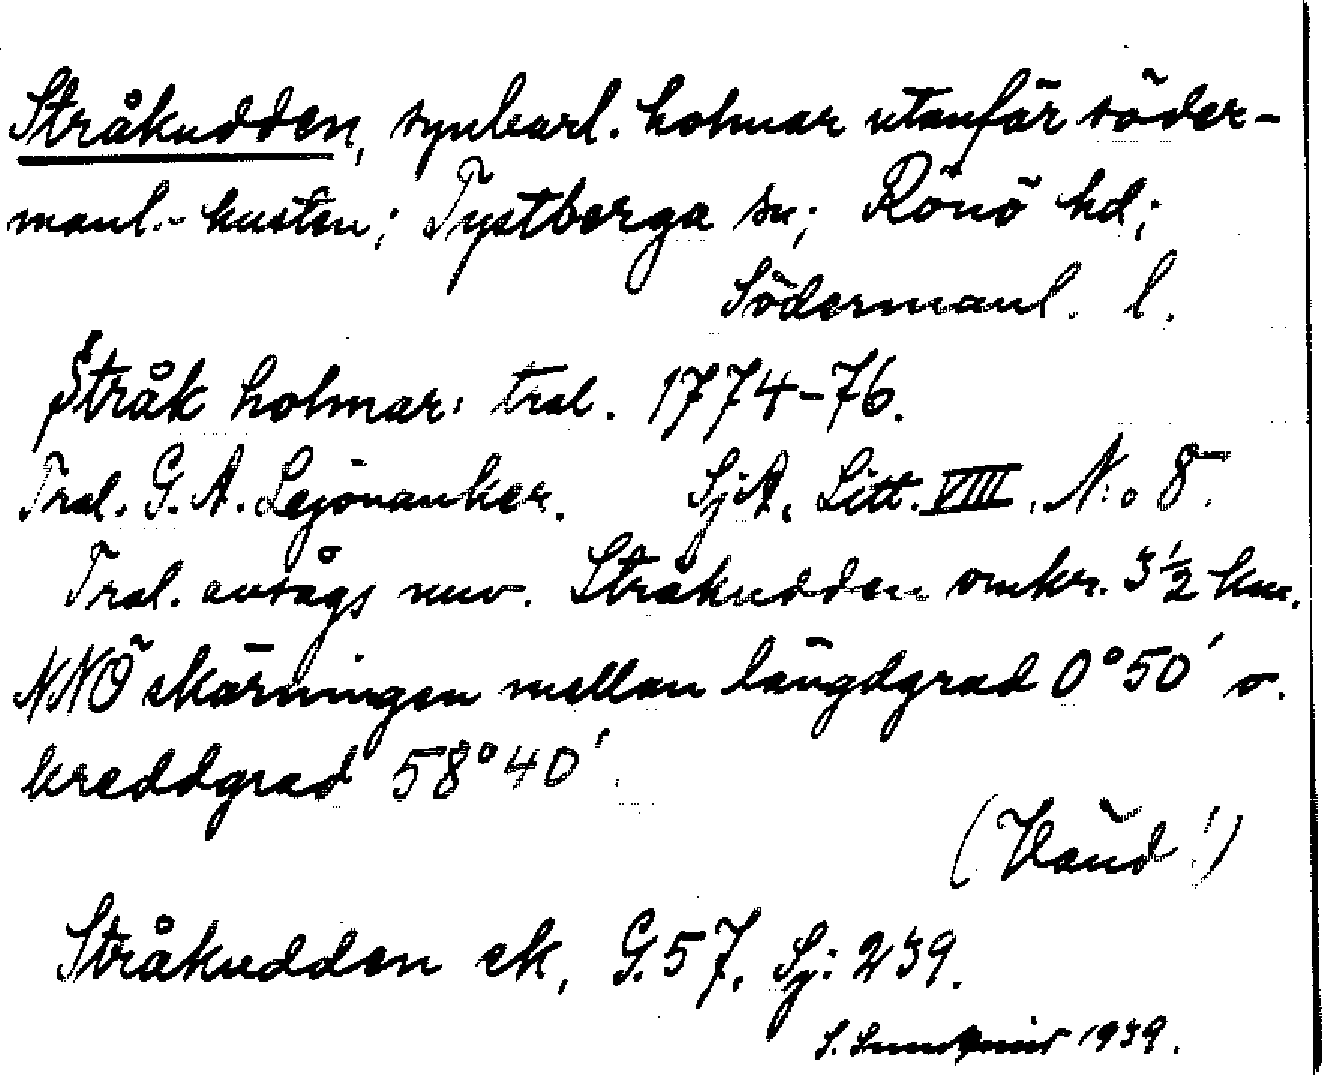 Stråkudden, synbarl. holmar utanför söder-
manl.-kusten; Tystberga sn; Rönö hd;
Södermanl. l.
Stråk holmar: tral. 1774-76.
Tral. G. A. Lejonanker. SjA. Litt. VIII. N:o 8.
Tral. avsågs nuv. Stråkudden omkr. 3½ km.
NNÖ skärningen mellan längdgrad 0°50′ o.
breddgrad 58°40′
(Vänd!)
Stråkudden ek, G.57. Sj: 239.
S. 1939.